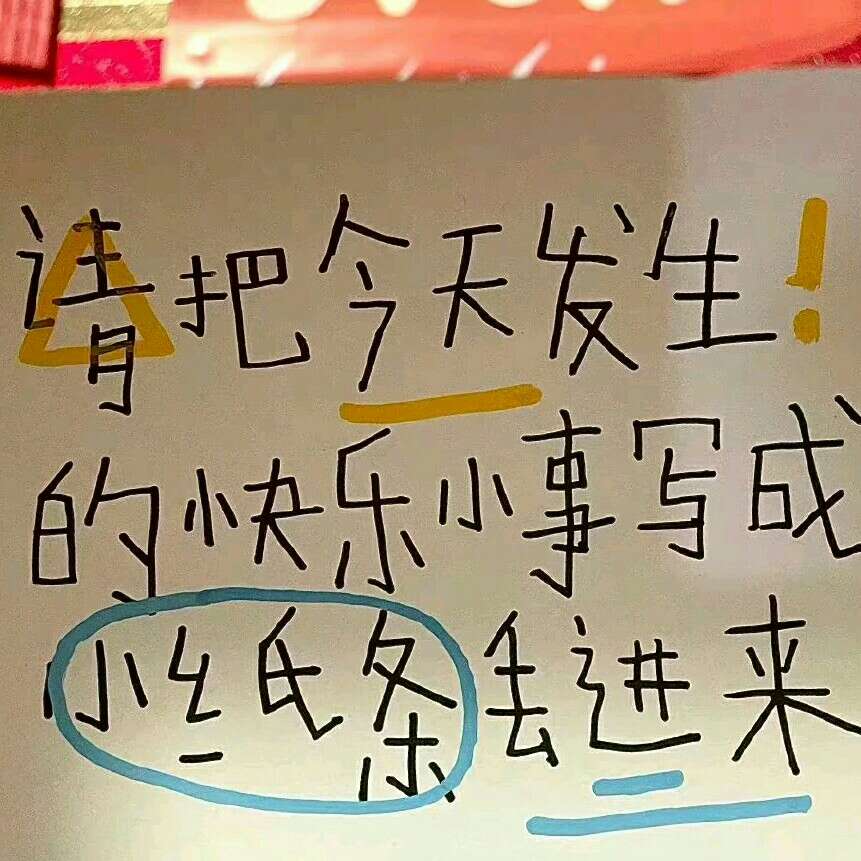 请把今天发生!
的快乐小事写成
小纸条丢进来